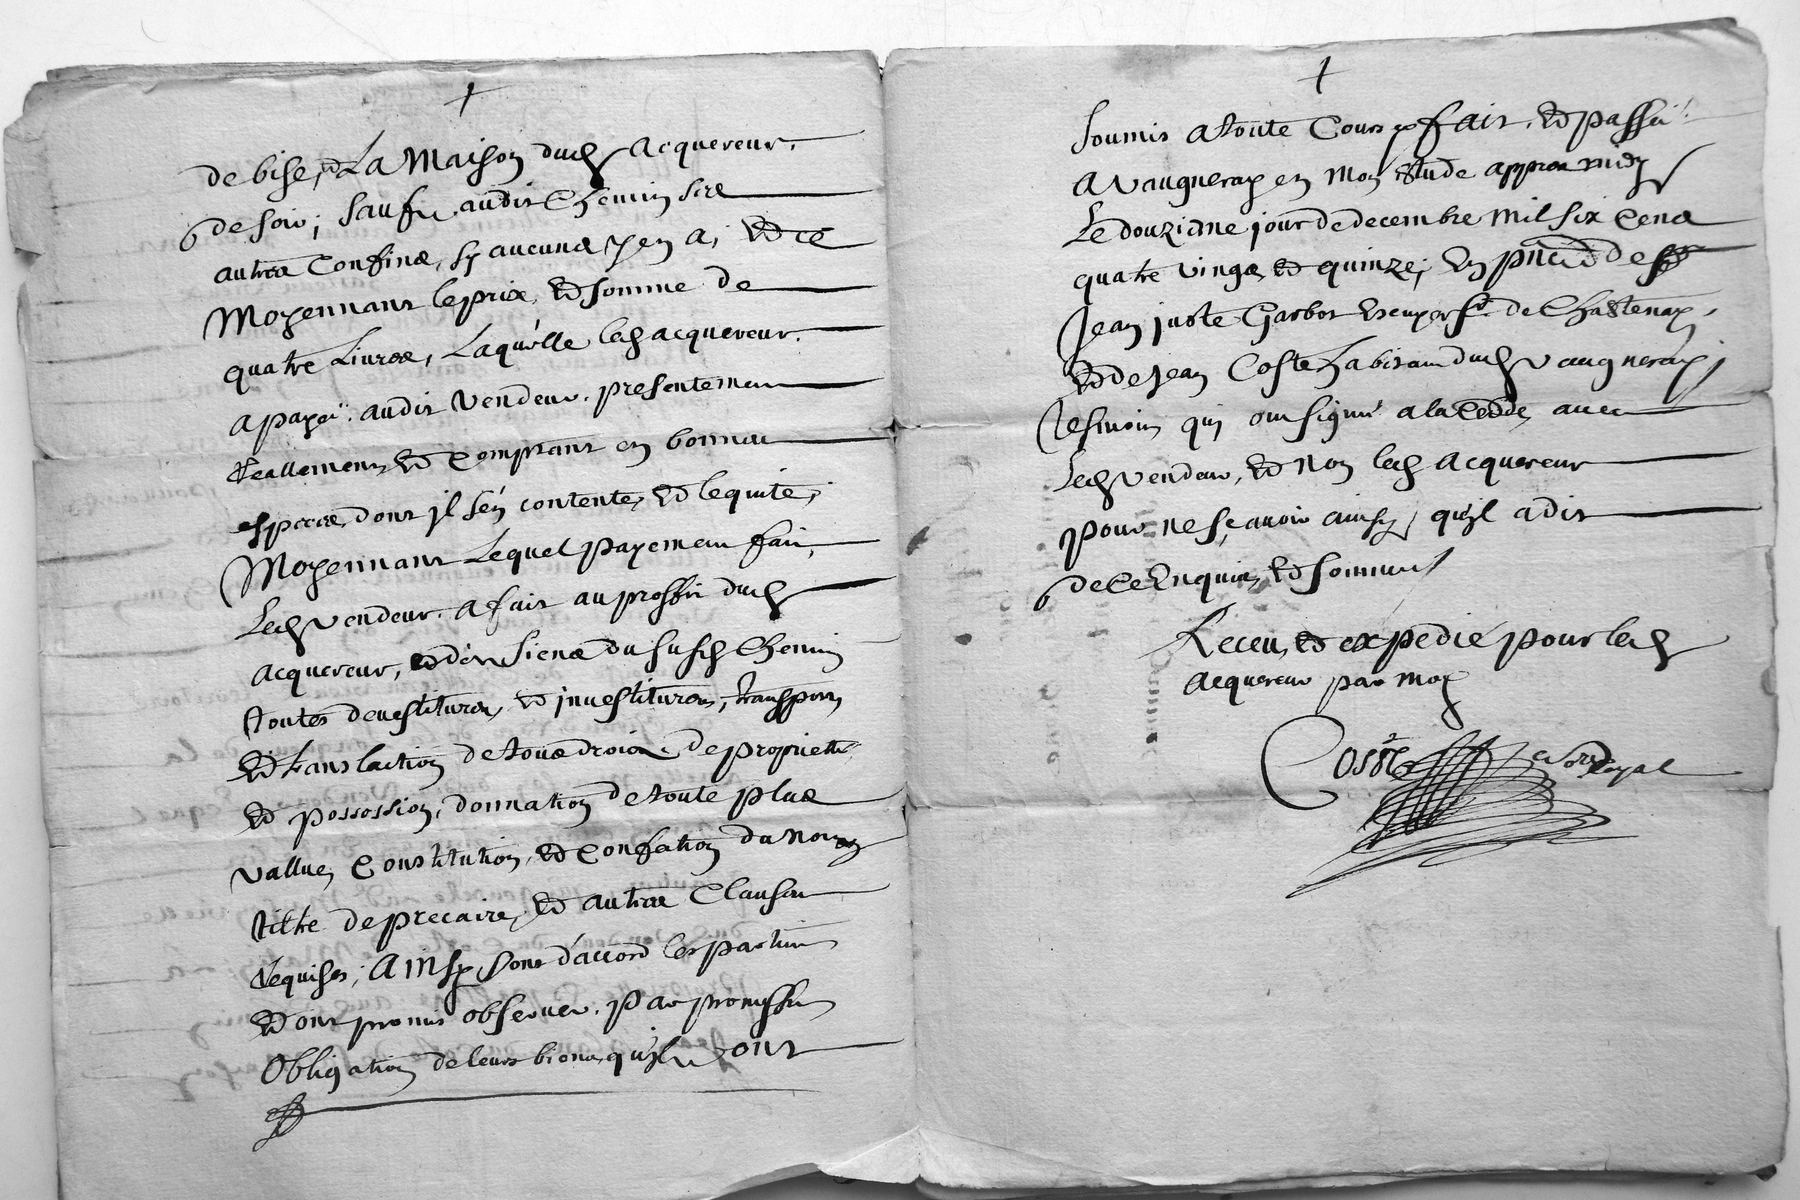 de bise, et La Maison dud acquereur,
de soir; Sauf audit Chemin ses
autres Confins, sy aucuns y en a; et ce
Moyennant le prix et somme de
quatre Livres, Laquelle led acquereur
a payé audit Vendeur presentement
reallement et comptant en bonnes
especes, dont jl s'en contente, et le quite,
Moyennant Lequel payement fait,
Led vendeur a fait au proffit dud
acquereur, et des Siens du susd Chemin
toutes devestitures, et jnvestitures, transport
et translaction de tous droits de proprieté
et possession, donnation de toute plus
vallue, Constitution, et Confession du nom
tiltre de precaire, et autres Clauses
requises; Ainsy sont d'accord les parties
et ont promis observer par
Obligation de leurs biens, qu'ils ont
Soumis a toute Cours fait et passé
a Vaugneray en Mon Etude appres midy
Le douzieme jour de decembre Mil six Cens
quatre vingts et quinze; En pñce de sr
Jean juste Garbot Escuyer sr de Chastenay,
et de jean Coste habitant dud Vaugneray
tesmoins qui ont signé a la Cedde, avec
Led Vendeur, et Non led acquereur
pour ne sçavoir ainsy qu'jl a dit
de ce Enquis, et sommé
Receu, et expedié pour led
acquereur par Moy
Coste Nore Royal